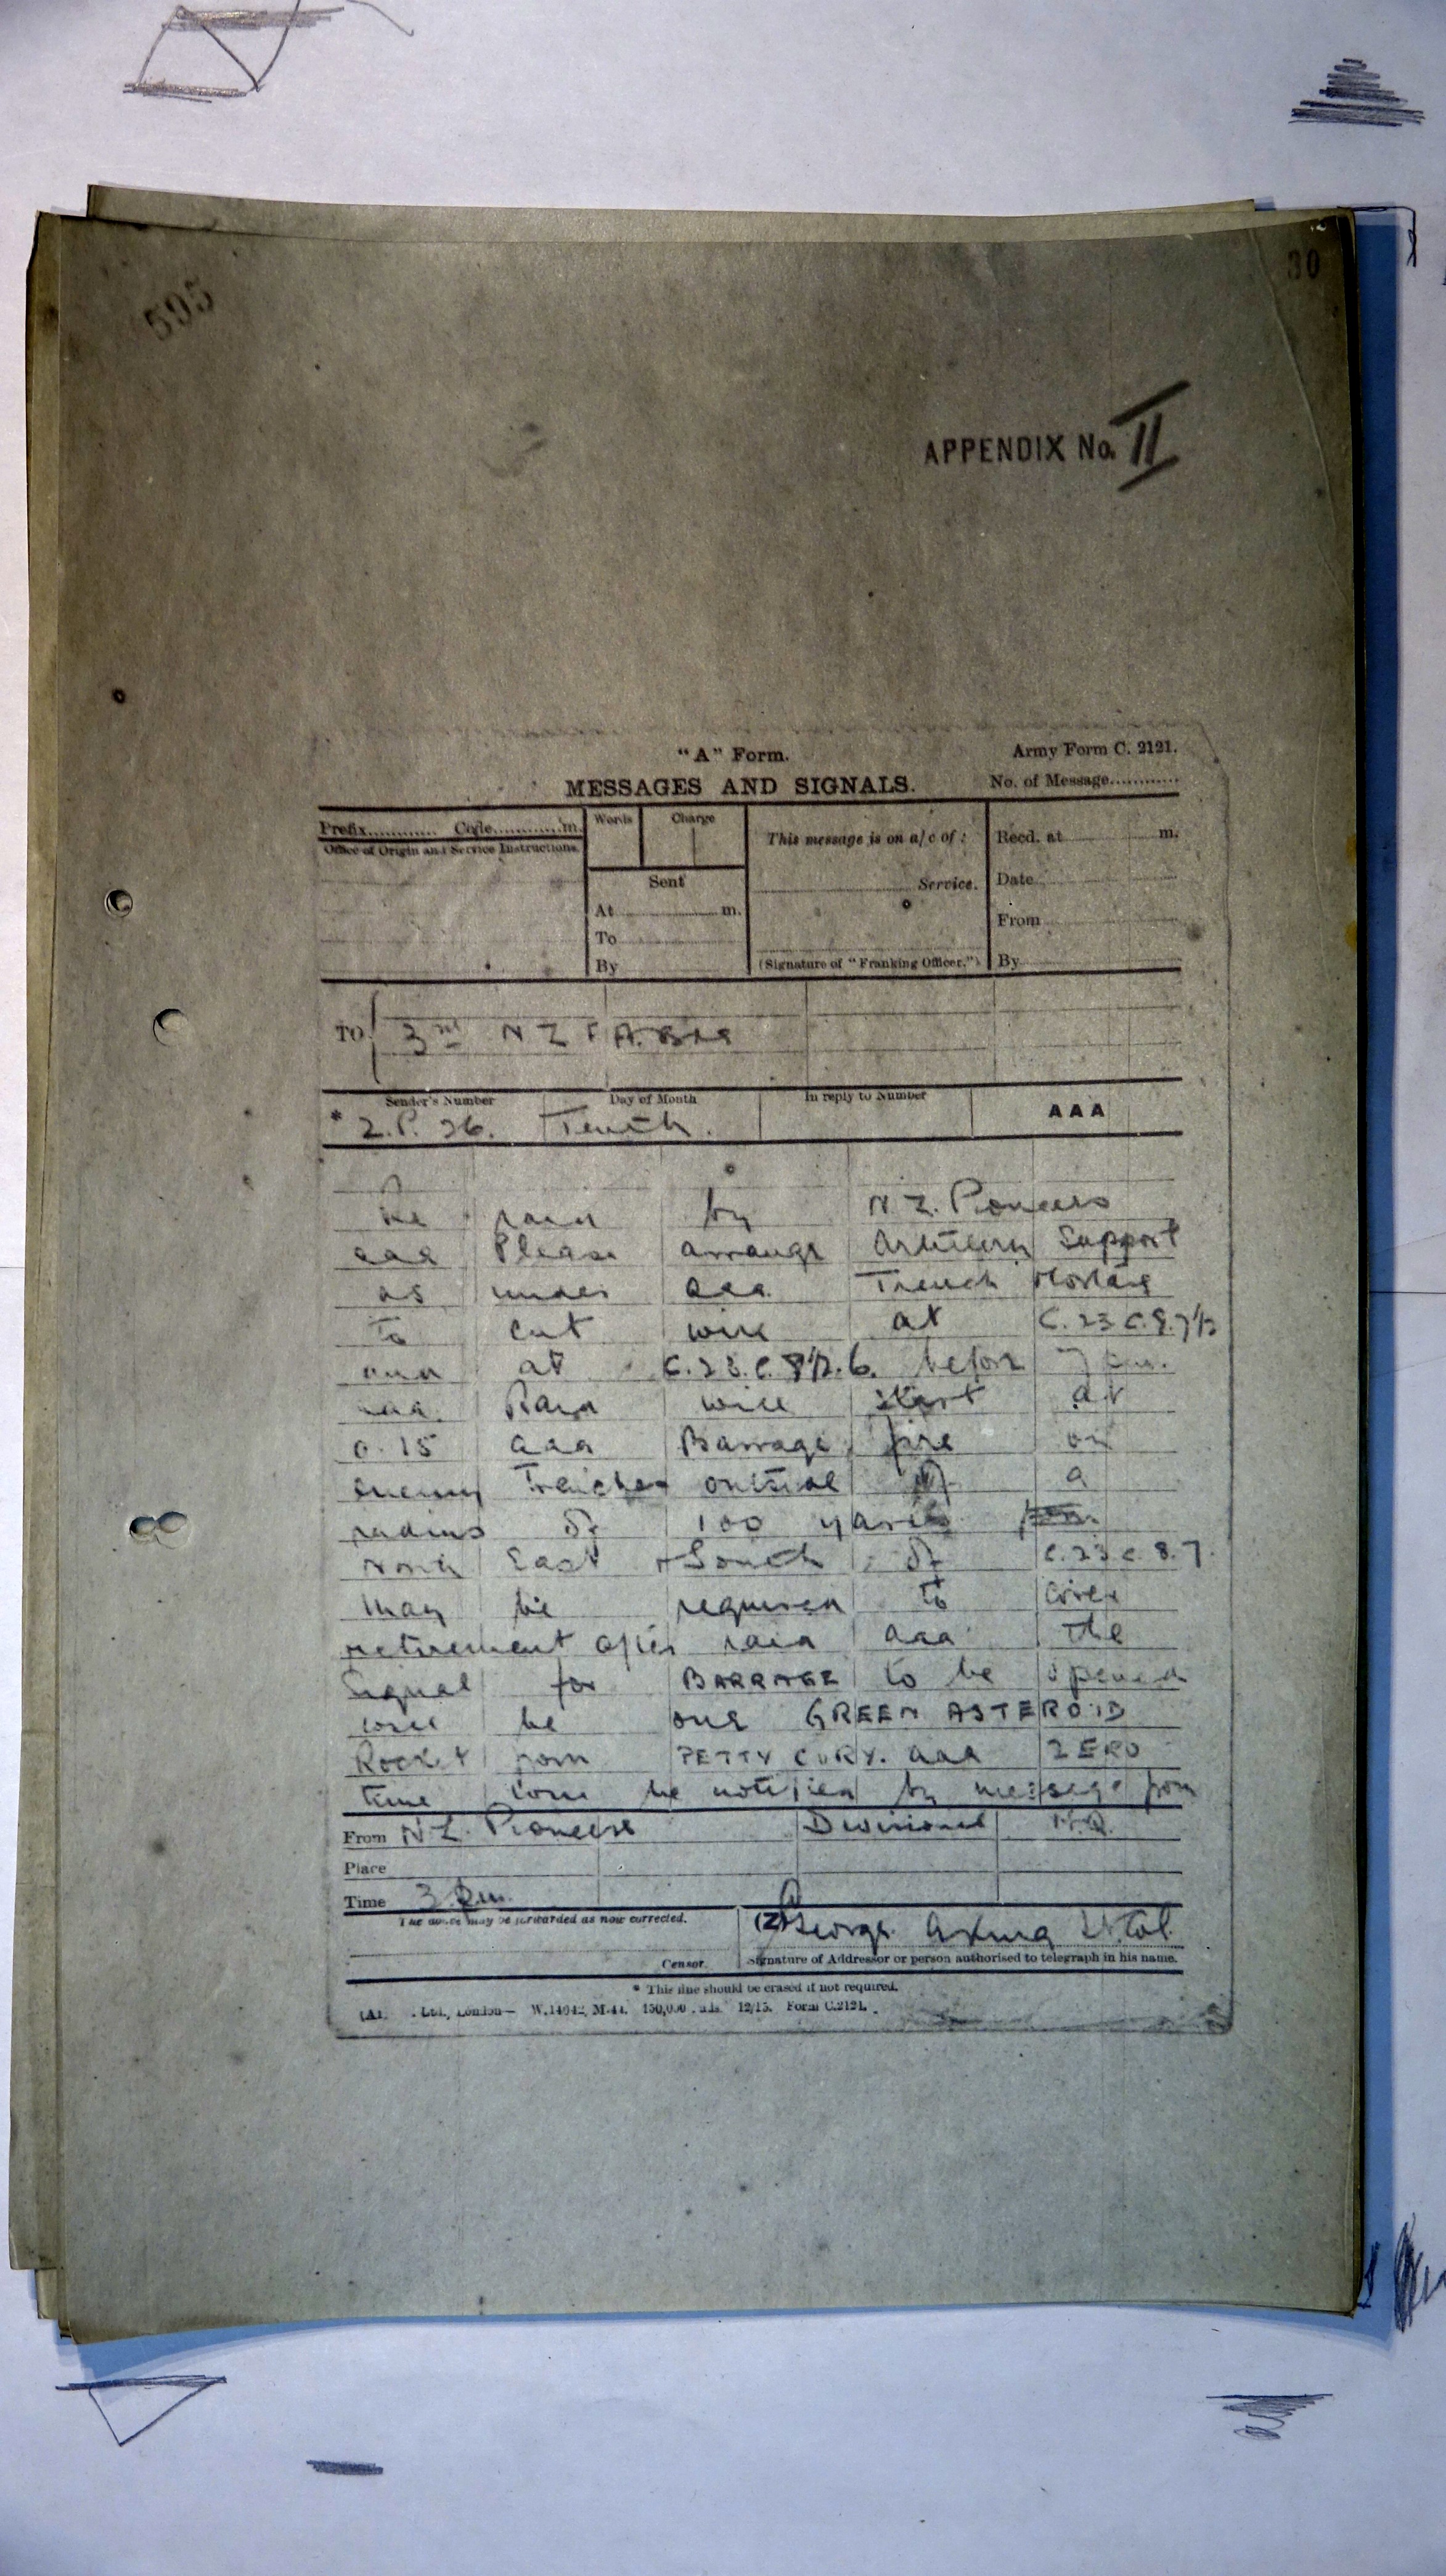 595
30
APPENDIX No. II
"A" Form.
Army Form C. 2121.
MESSAGES AND SIGNALS.
No. of Message............
Prefix............ Code............m.
Words
Charge
This message is on a/c of:
Recd. at ............ m.
Office of Origin and Service Instructions.
Sent
............ Service.
Date
At ............ m.
From
To
By
(Signature of "Franking Officer.")
By
TO 3rd N Z F A. Bde
Sender's Number
Day of Month
In reply to Number
AAA
* Z.P. 26. Tenth.
Re raid by N.Z. Pioneers
aaa Please arrange Artillery Support
as under aaa Trench Mortars
to cut wire at C.23 c.8.7½
and at C.23.c.8½.6. before 7 pm.
aaa. Raid will start at
0.15 aaa Barrage fire on
enemy Trenches outside of a
radius of 100 yards
North East + South of C.23 c. 8.7.
may be required to cover
retirement after raid aaa The
Signal for BARRAGE to be opened
will be one GREEN ASTEROID
Rocket from PETTY CURY. aaa ZERO
time will be notified by message from
From N.Z. Pioneers Divisional H.Q.
Place
Time 3 p.m.
The above may be forwarded as now corrected.
(Z) George Lt. Col.
Censor.
Signature of Addressor or person authorised to telegraph in his name.
* This line should be erased if not required.
Ltd., London— W.14042, M.44. 150,000 . 12/15. Form C.2121.